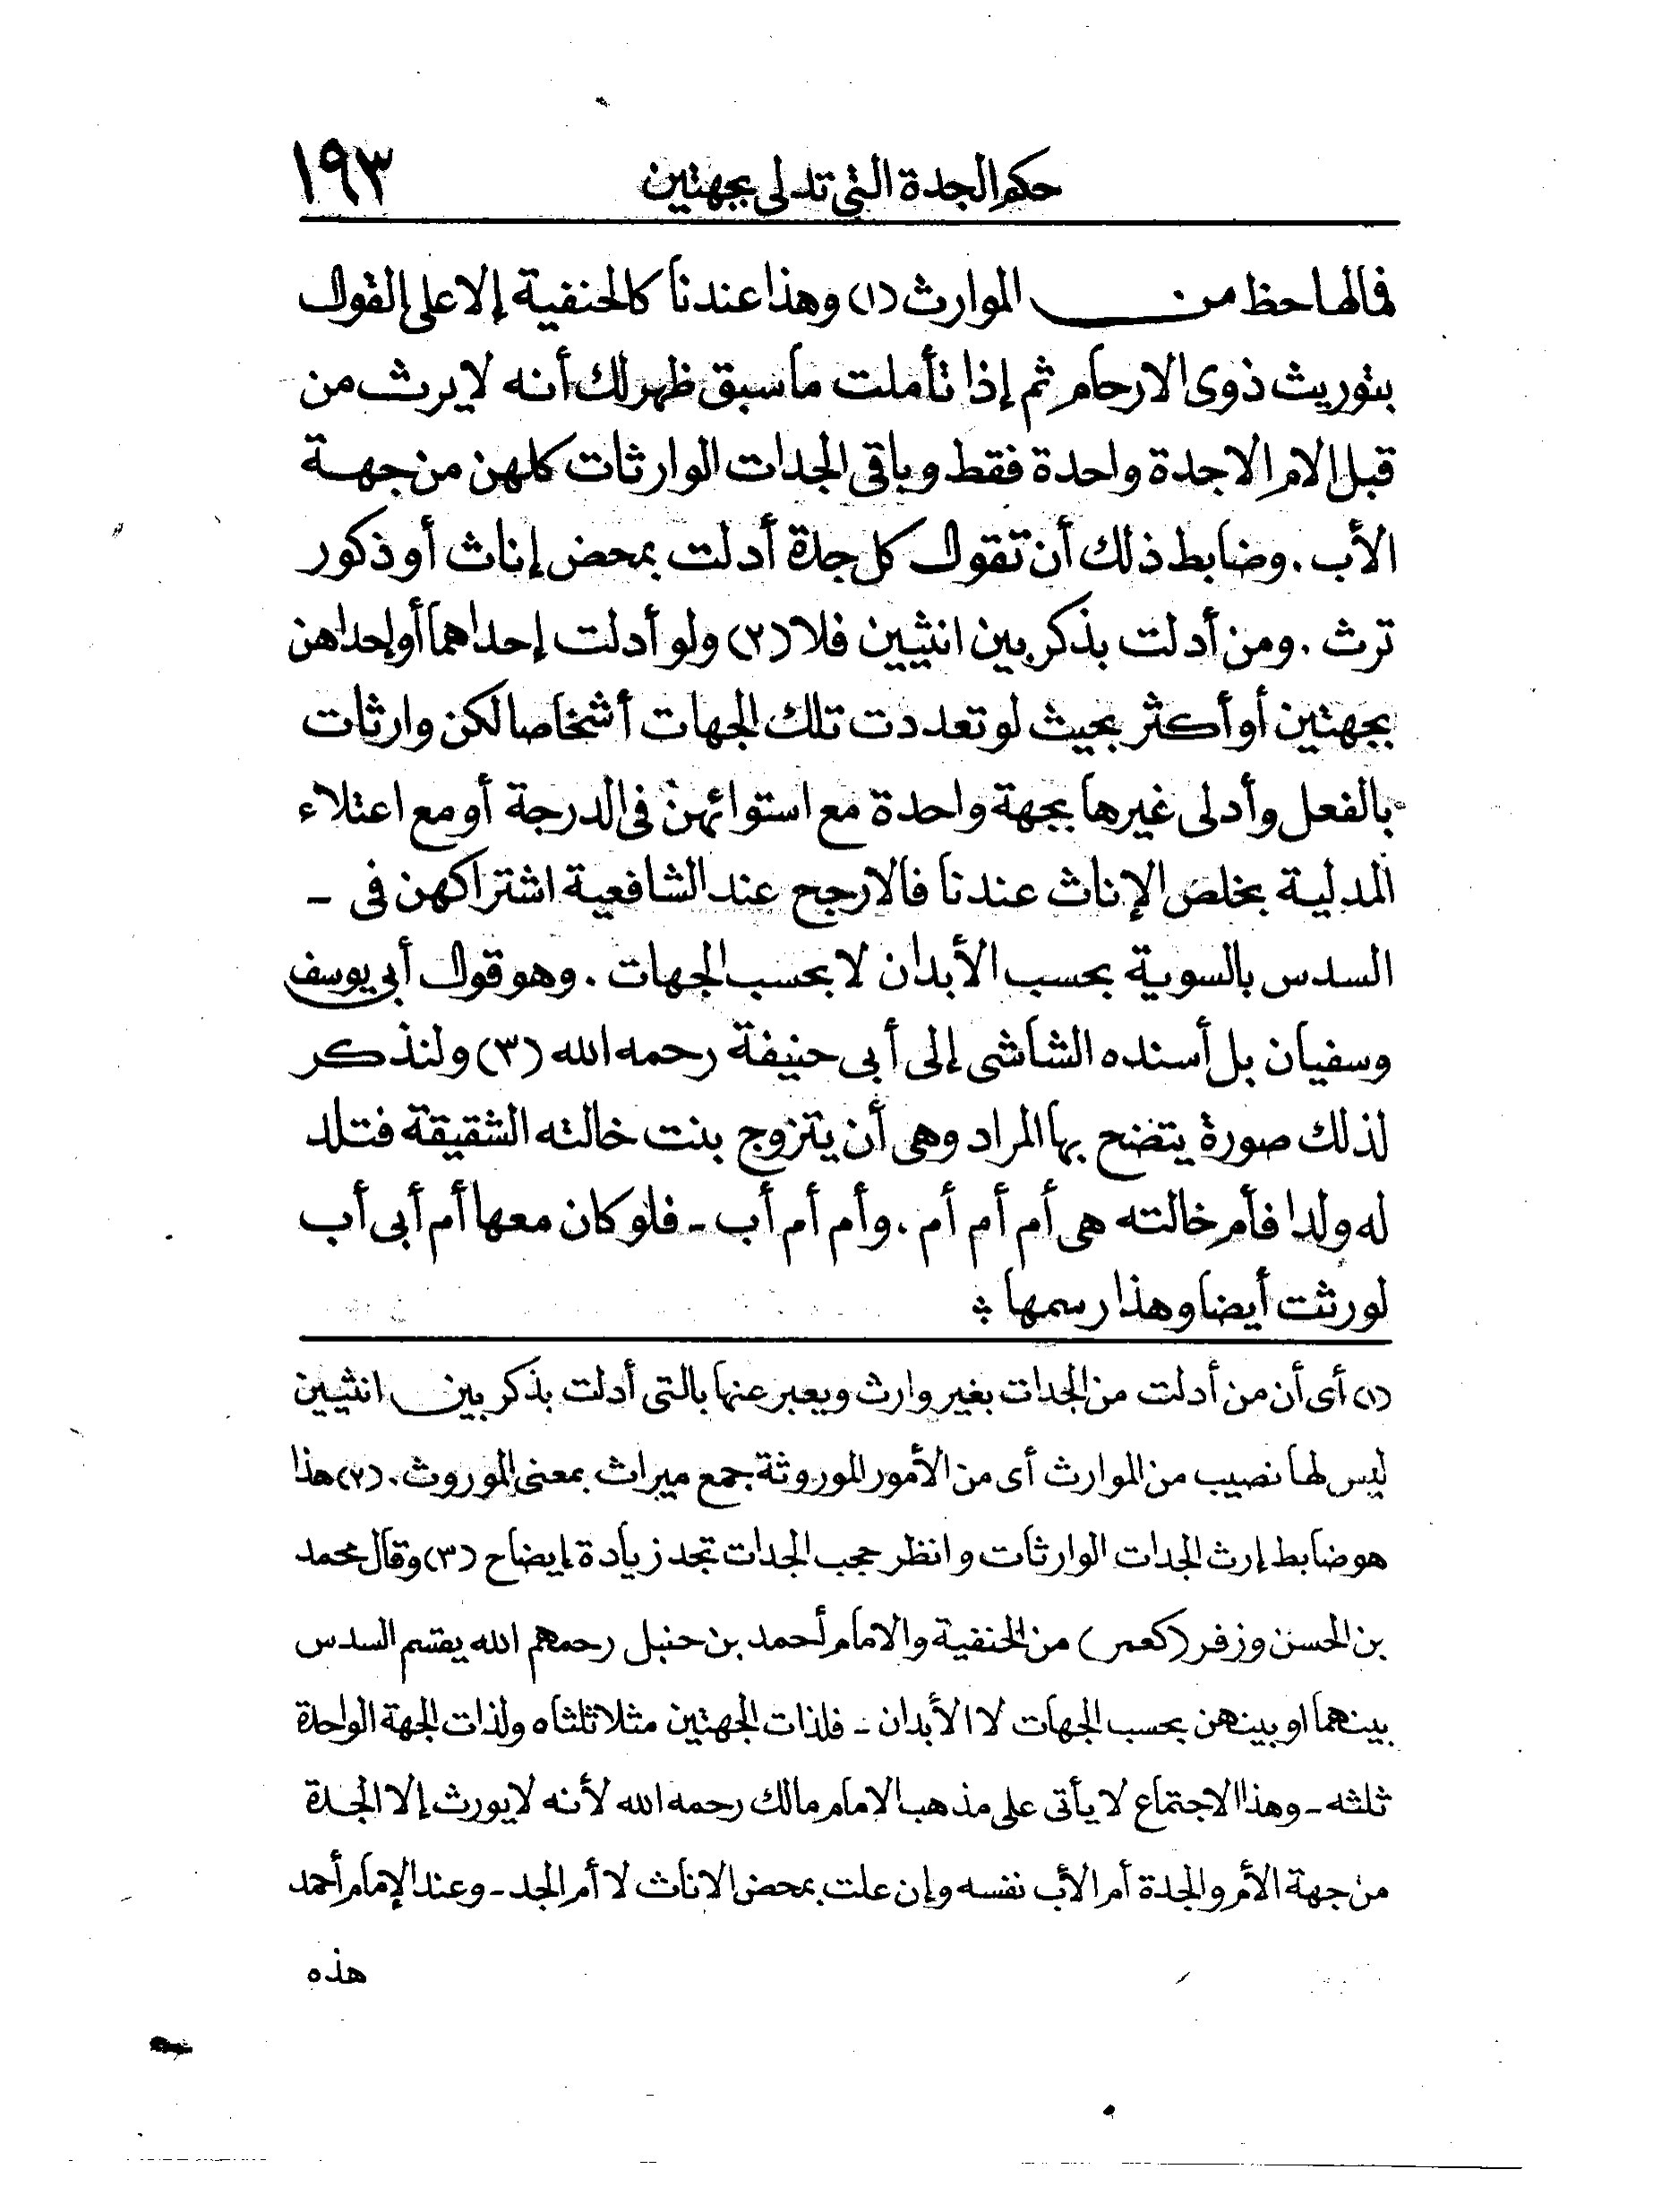 حكم الجدة التى تدلى بجهتين ١٩٣
فمالها حظ من الموارث (١) وهذا عندنا كالحنفية إلا على القول
بتوريث ذوى الارحام ثم إذا تأملت ما سبق ظهر لك أنه لا يرث من
قبل الام الا جدة واحدة فقط وباقى الجدات الوارثات كلهن من جهة
الأب . وضابط ذلك أن تقول كل جدة أدلت بمحض إناث أو ذكور
ترث . ومن أدلت بذكر بين انثيين فلا (٢) ولو أدلت إحداهما أو إحداهن
بجهتين أو أكثر بحيث لو تعددت تلك الجهات أشخاصا لكن وارثات
بالفعل وأدلى غيرها بجهة واحدة مع استوائهن فى الدرجة أو مع اعتلاء
المدلية بخلص الإناث عندنا فالارجح عند الشافعية اشتراكهن فى -
السدس بالسوية بحسب الأبدان لا بحسب الجهات . وهو قول أبى يوسف
وسفيان بل أسنده الشاشى إلى أبى حنيفة رحمه الله (٣) ولنذكر
لذلك صورة يتضح بها المراد وهى أن يتزوج بنت خالته الشقيقة فتلد
له ولدا فأم خالته هى أم أم أم . وأم أم أب - فلو كان معها أم أبى أب
لورثت أيضا وهذا رسمها ؞
(١) أى أن من أدلت من الجدات بغير وارث ويعبر عنها بالتى أدلت بذكر بين انثيين
ليس لها نصيب من الموارث أى من الأمور الموروثة جمع ميراث بمعنى الموروث . (٢) هذا
هو ضابط إرث الجدات الوارثات وانظر حجب الجدات تجد زيادة إيضاح (٣) وقال محمد
بن الحسن وزفر (كعمر) من الحنفية والامام أحمد بن حنبل رحمهم الله يقسم السدس
بينهما او بينهن بحسب الجهات لا الأبدان - فلذات الجهتين مثلا ثلثاه ولذات الجهة الواحدة
ثلثه - وهذا الاجتماع لا يأتى على مذهب الامام مالك رحمه الله لأنه لا يورث إلا الجدة
من جهة الأم والجدة أم الأب نفسه وإن علت بمحض الاناث لا أم الجد - وعند الإمام أحمد
هذه